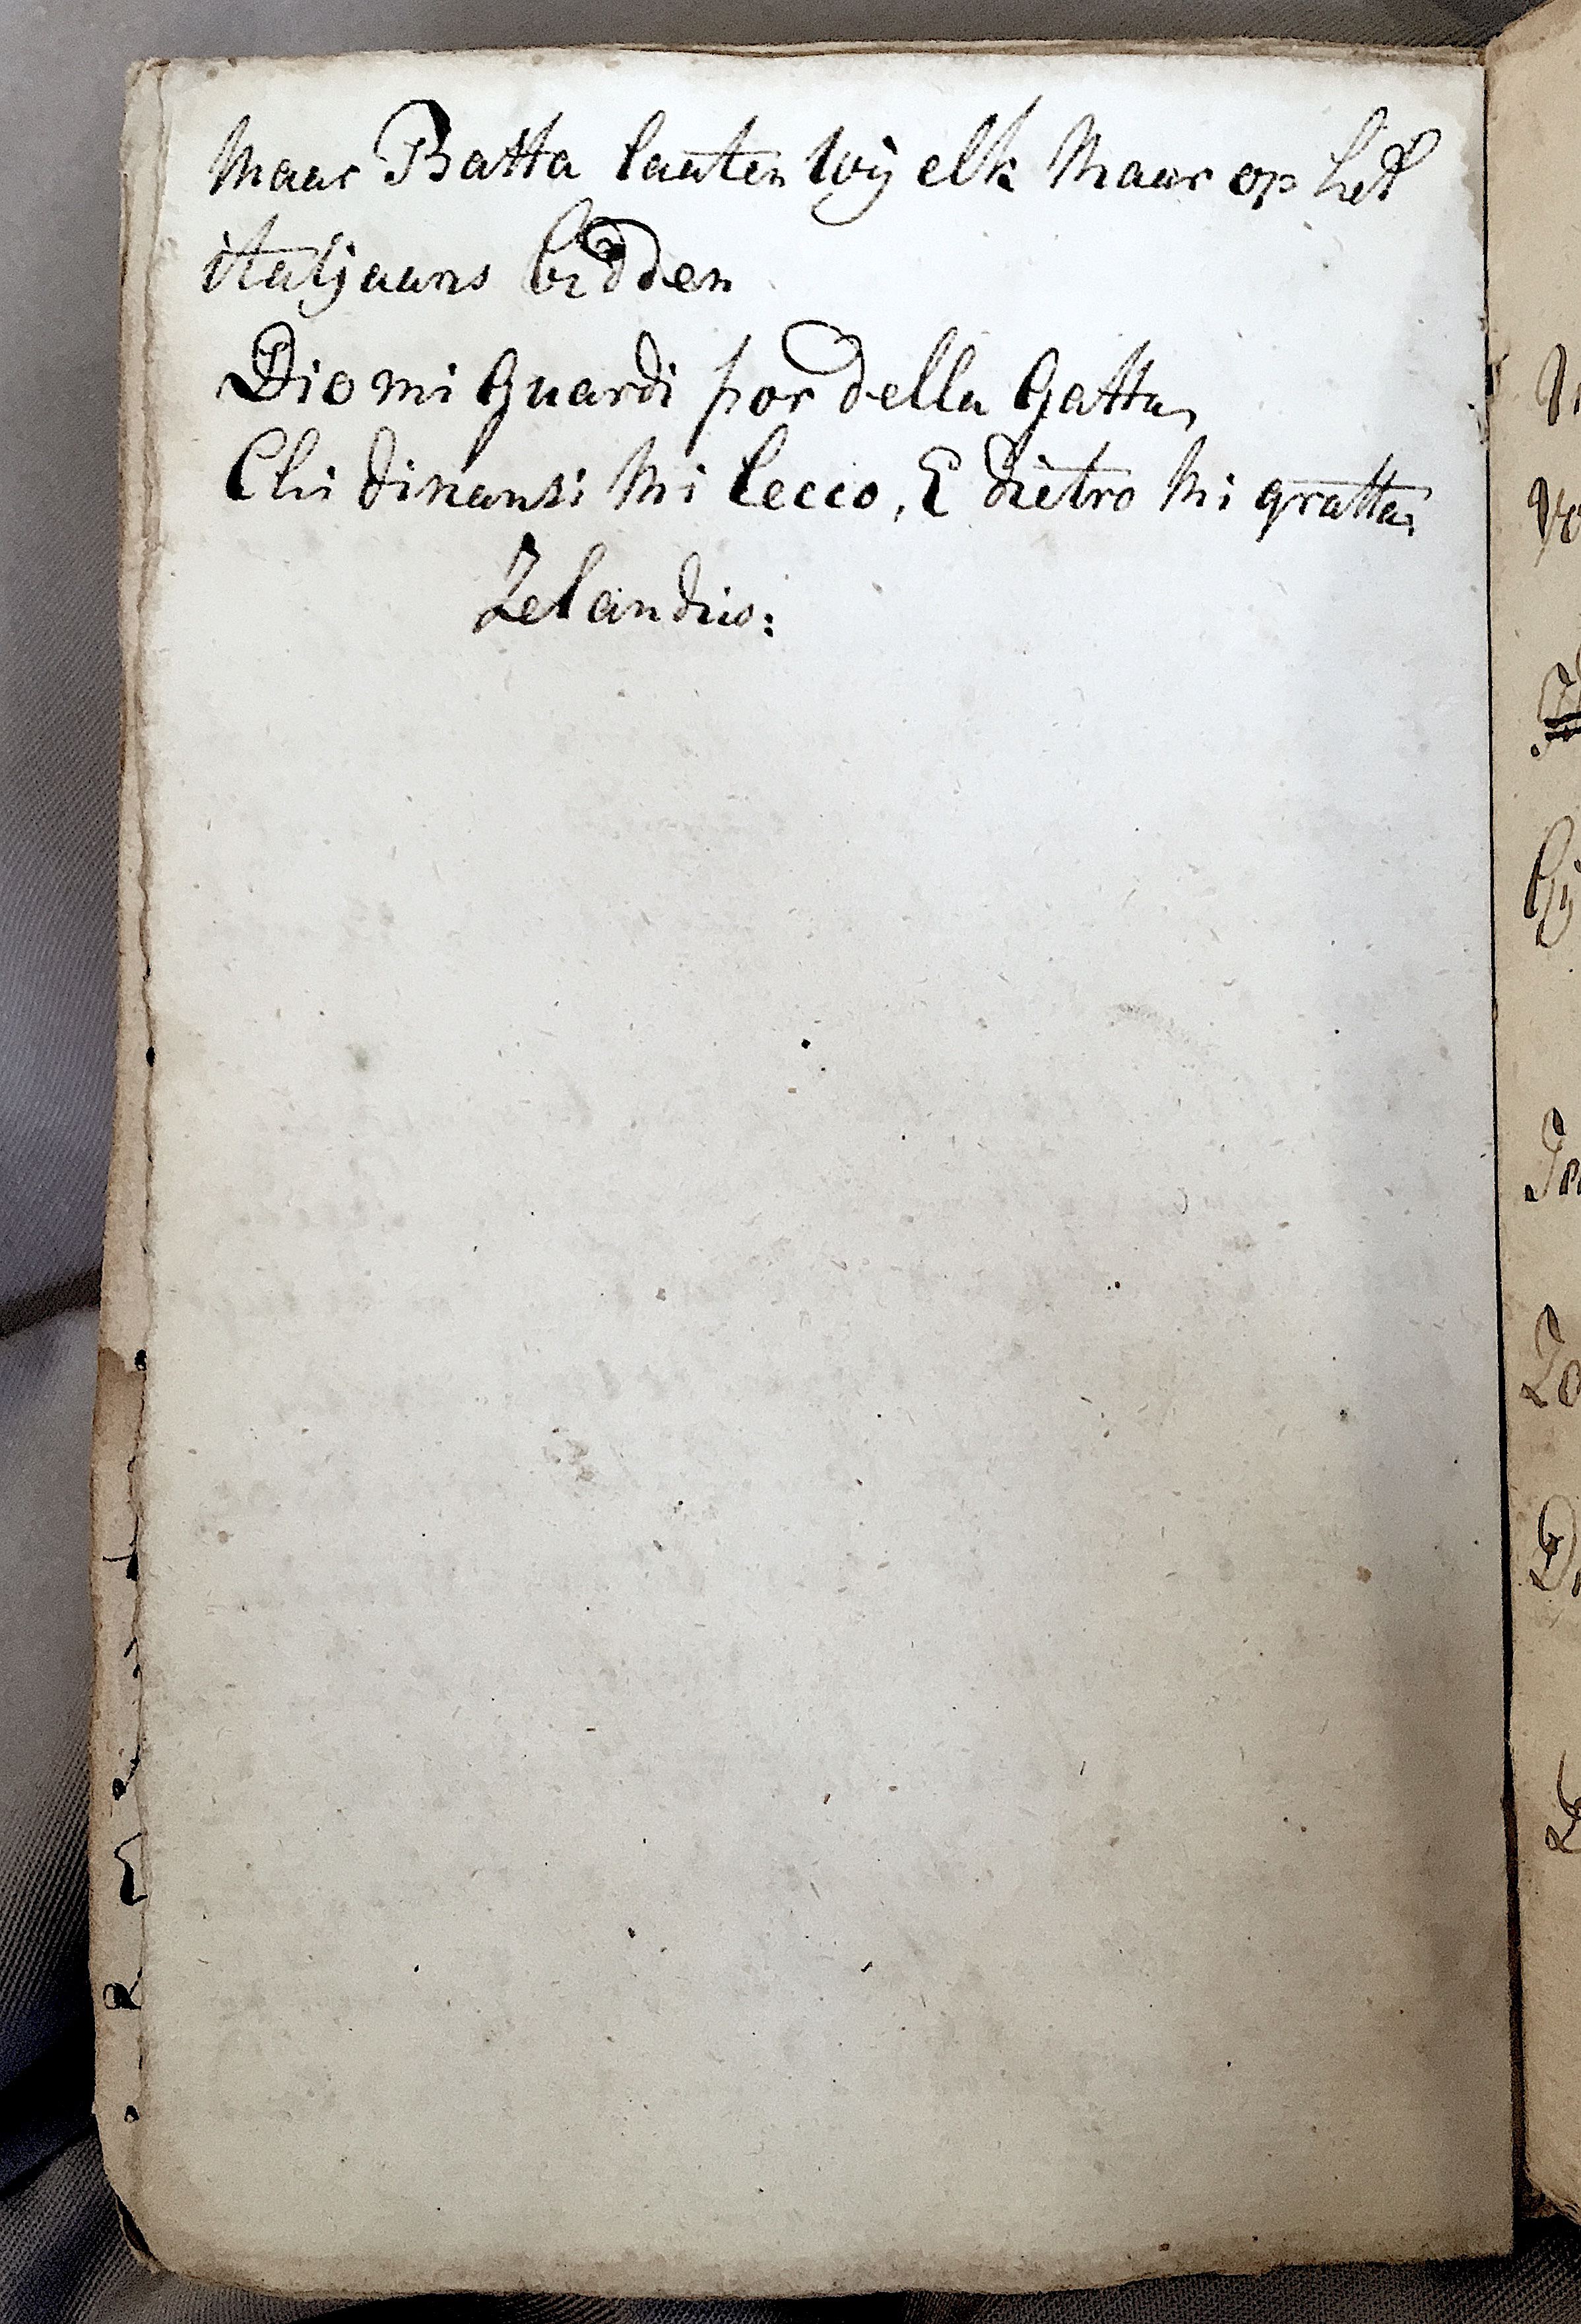 Maar Batta laaten wij elk Maar op het
italjaans bidden
Dio mi guardi por della gatta,
Chi dinansi Mi lecco, E dietro Mi gratta,
Zelandus: